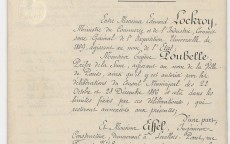 Entre Monsieur Edouard Lockroy,
Ministre du Commerce et de l'Industrie, Commis-
saire Général de l'Exposition Universelle de
1889, agissant au nom de l'Etat,
Monsieur Eugène Poubelle,
Préfet de la Seine, agissant au nom de la Ville
de Paris, ainsi qu'il y est autorisé par les
délibérations du Conseil Municipal des 22
Octobre et 23 Décembre 1886 et
limites par ces délibérations, qui
D'une part;
Et Monsieur Eiffel, Ingénieur-
Constructeur, demeurant à Levallois-Perret,